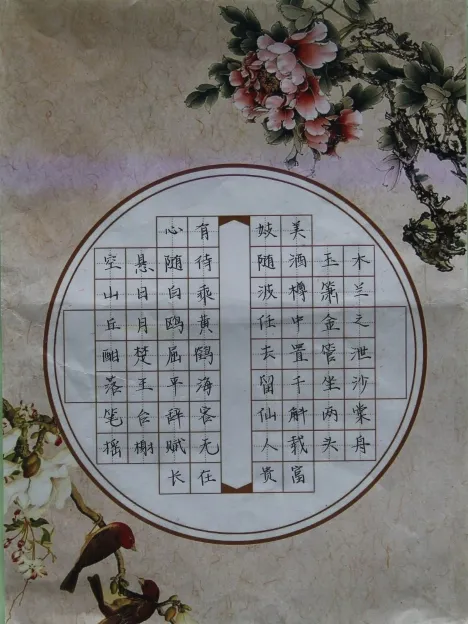 木兰之泄沙棠舟
玉箫金管坐两头
美酒樽中置千斛载富
妓随波任去留仙人贵
有待乘黄鹤海客无在
心随白鸥屈平辞赋长
悬日月楚王台榭
空山丘酣落笔摇